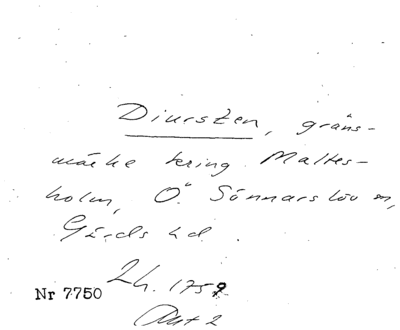 Diursten, gräns-
märke kring Maltes-
holm, Ö. Sönnarslöv sn,
Gärds hd.
Lh. 1759
Nr 7750
Akt 2